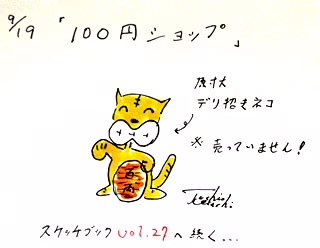 9/19 「100円ショップ」
原材
デリ招きネコ
※ 売っていません!
百両
スケッチブック vol.27へ続く...